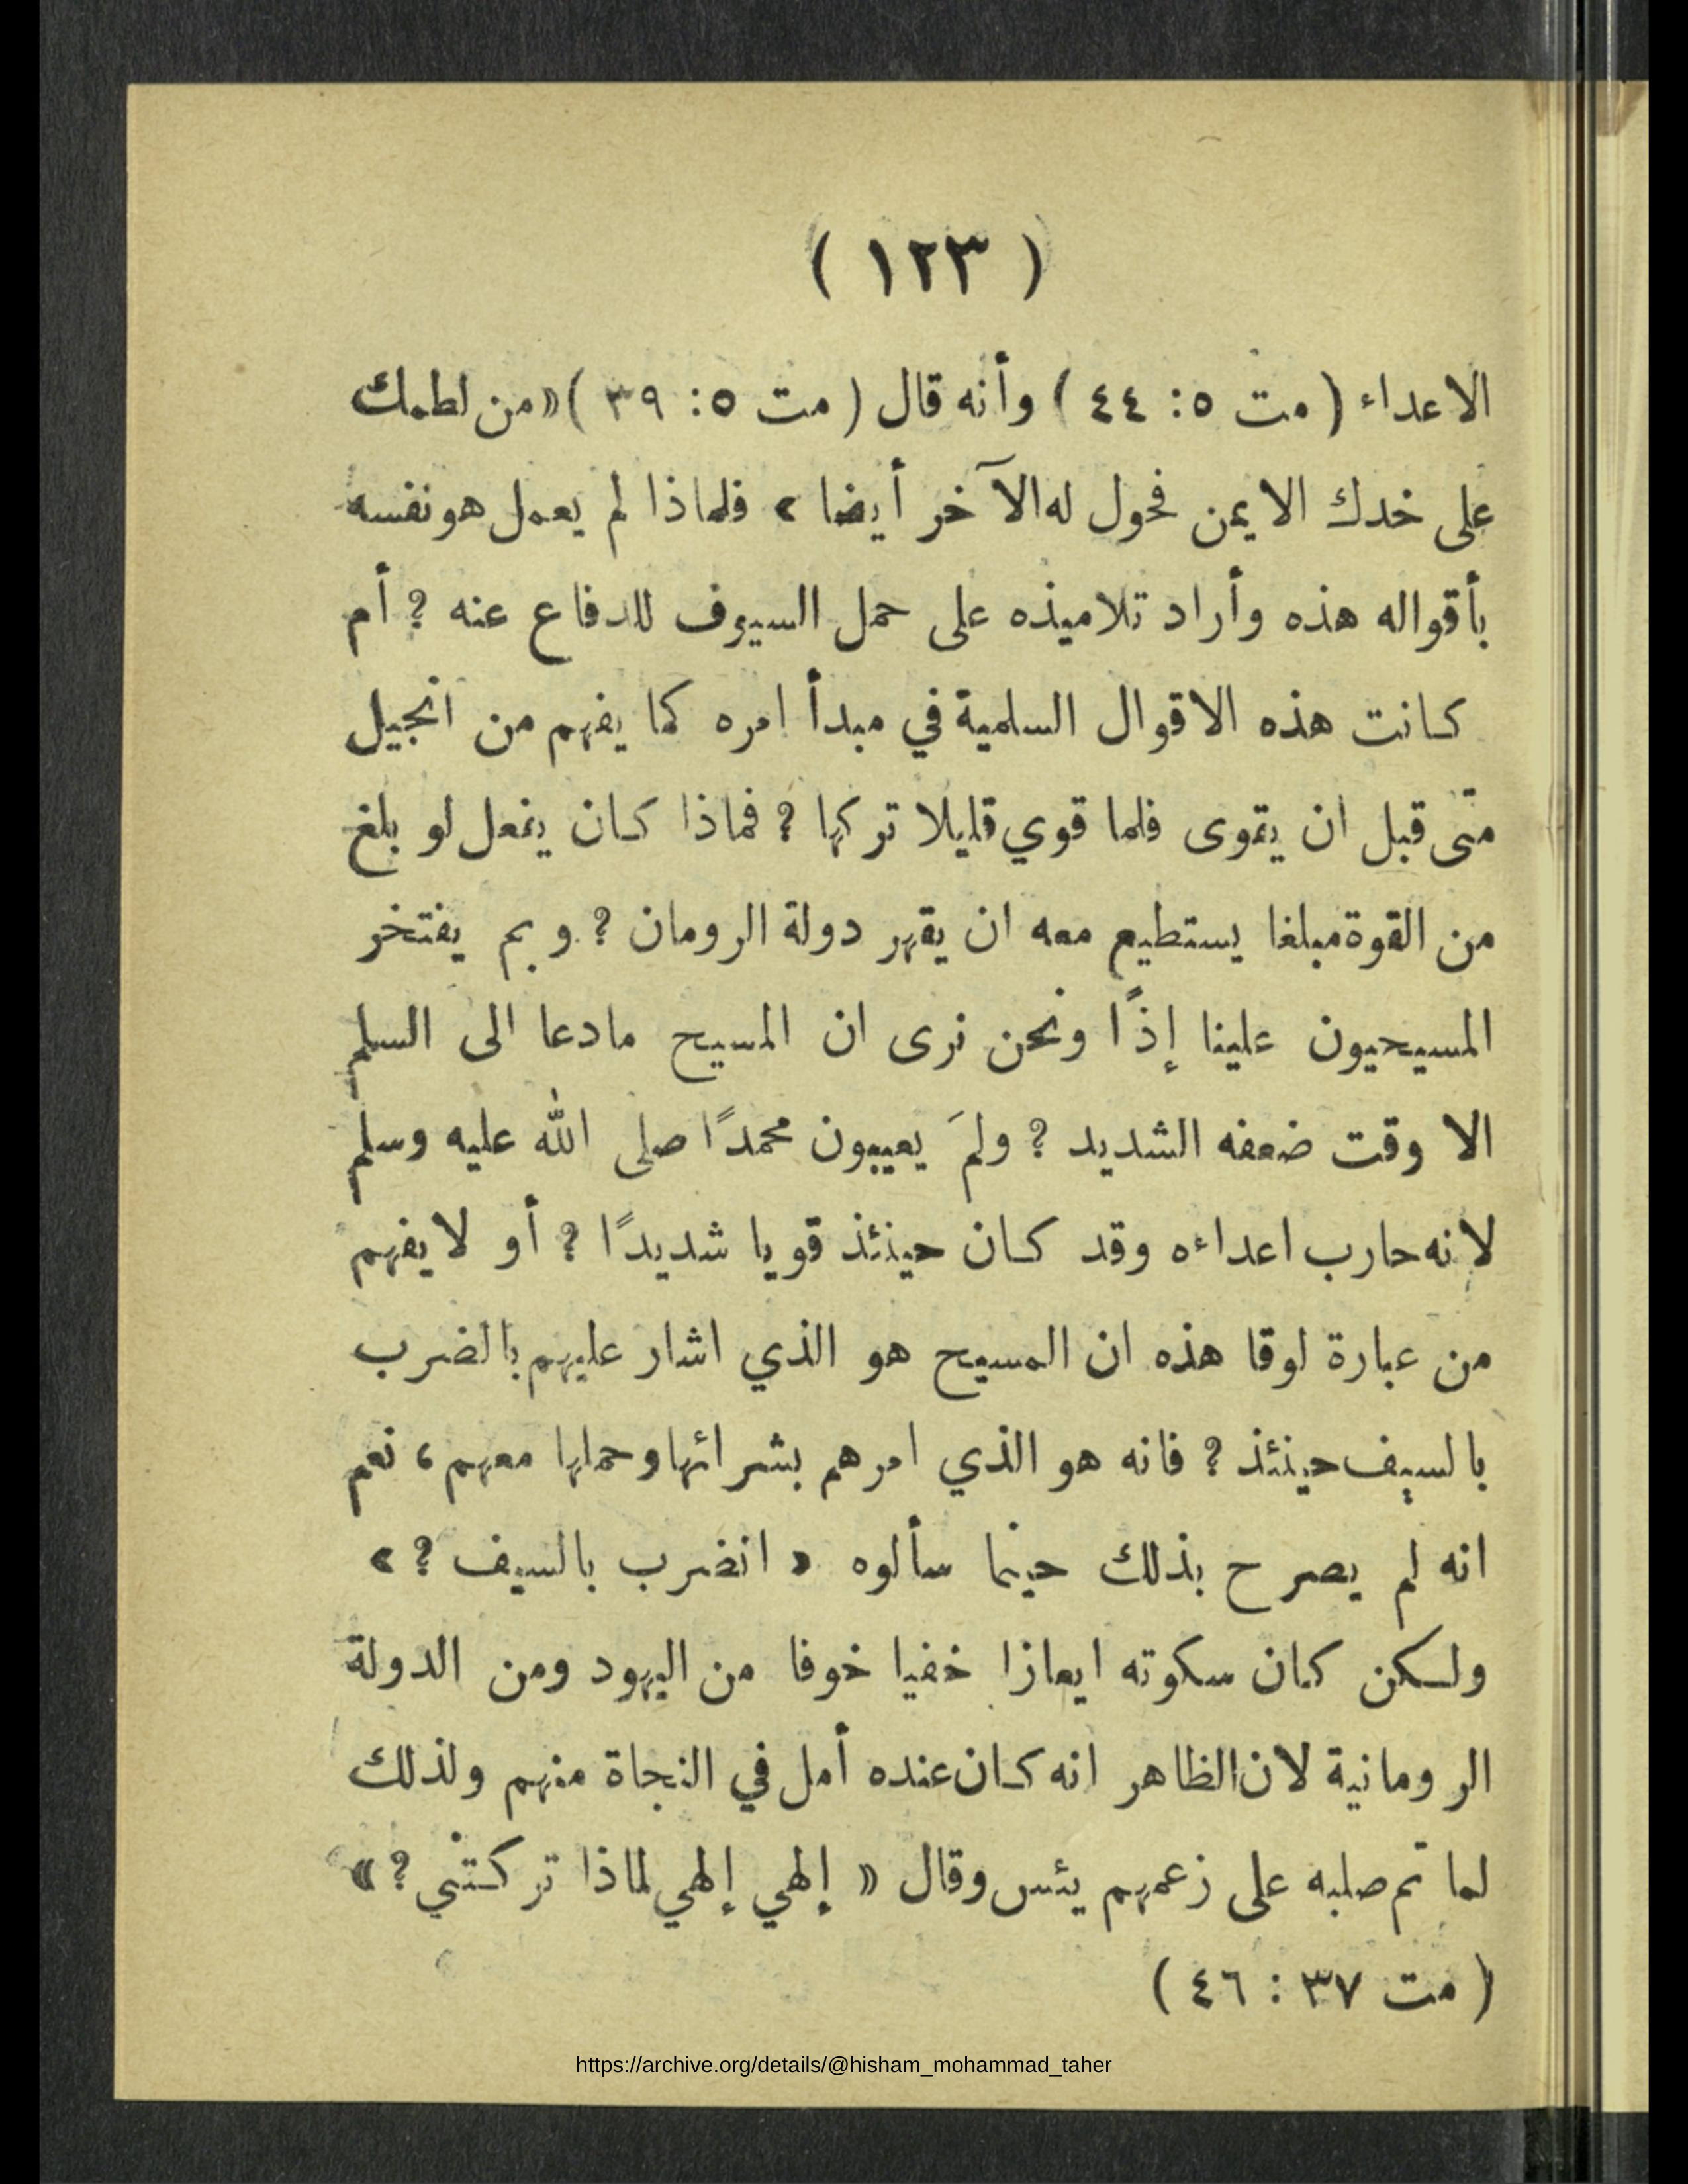 ( ١٢٣ )
الاعداء ( مت ٥: ٤٤ ) وأنه قال ( مت ٥: ٣٩ ) «من لطمك
على خدك الايمن فحول له الآخر أيضا » فلماذا لم يعمل هو نفسه
بأقواله هذه وأراد تلاميذه على حمل السيوف للدفاع عنه ? أم
كانت هذه الاقوال السلمية في مبدأ امره كما يفهم من انجيل
متى قبل ان يقوى فلما قوي قليلا تركها ? فماذا كان يفعل لو بلغ
من القوة مبلغا يستطيع معه ان يقهر دولة الرومان ? وبم يفتخر
المسيحيون علينا إذًا ونحن نرى ان المسيح مادعا الى السلم
الا وقت ضعفه الشديد ? ولمَ يعيبون محمدًا صلى الله عليه وسلم
لانه حارب اعداءه وقد كان حينئذ قويا شديدًا ? أو لا يفهم
من عبارة لوقا هذه ان المسيح هو الذي اشار عليهم بالضرب
بالسيف حينئذ ? فانه هو الذي امرهم بشرائها وحملها معهم ، نعم
انه لم يصرح بذلك حينما سألوه « انضرب بالسيف ? »
ولكن كان سكوته ايعازا خفيا خوفا من اليهود ومن الدولة
الرومانية لان الظاهر انه كان عنده أمل في النجاة منهم ولذلك
لما تم صلبه على زعمهم يئس وقال « إلهي إلهي لماذا تركتني ? »
( مت ٣٧ : ٤٦ )
https://archive.org/details/@hisham_mohammad_taher